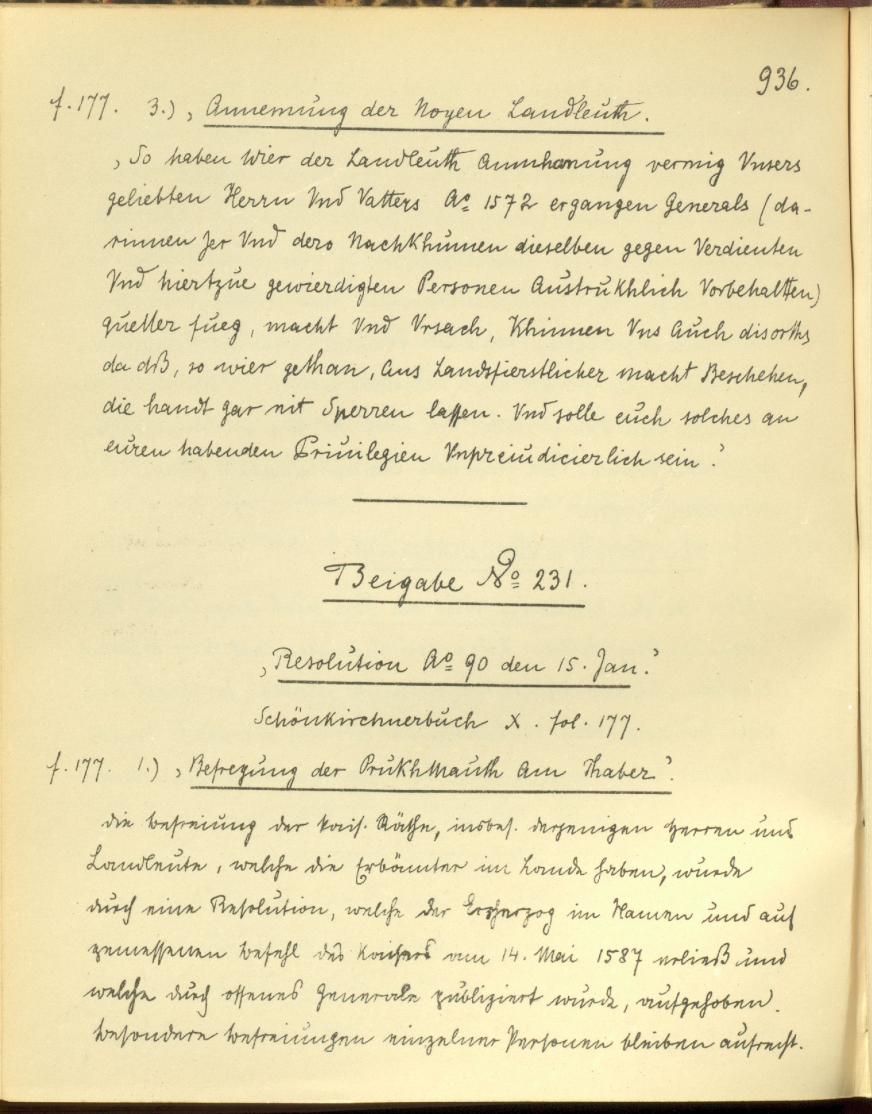 936.
f. 177. 3.) ‚Annemung der Noyen Landleuth.
‚So haben Wier der Landleuth Annhemung vermig Vnsers
geliebten Herrn Vnd Vatters Aº 1572 ergangen Generals (da-
rinnen Jer Vnd dero Nachkhumen dieselben gegen Verdienten
Vnd hiertzue gewierdigten Personen Austrukhlich Vorbehaltten)
guetter fueg, macht Vnd Vrsach, Khinnen Vns Auch disorths
da dß, so wier gethan, Aus Landsfierstlicher macht Beschehen,
die handt gar nit Sperren lassen. Vnd solle euch solches an
euren habenden Priuilegien Vnpreiudicierlich sein.'
Beigabe Nº 231.
‚Resolution Aº 90 den 15. Jan.'
Schönkirchnerbuch X. fol. 177.
f. 177. 1.) ‚Befreyung der Prukhmauth Am Thaber'.
Die Befreiung der kais. Räthe, insbes. derjenigen Herren und
Landleute, welche die Erbämter im Lande haben, wurde
durch eine Resolution, welche der Erzherzog im Namen und auf
gemessenen Befehl des Kaisers am 14. Mai 1587 erließ und
welche durch offenes Generale publiziert wurde, aufgehoben.
Besondere Befreiungen einzelner Personen bleiben aufrecht.